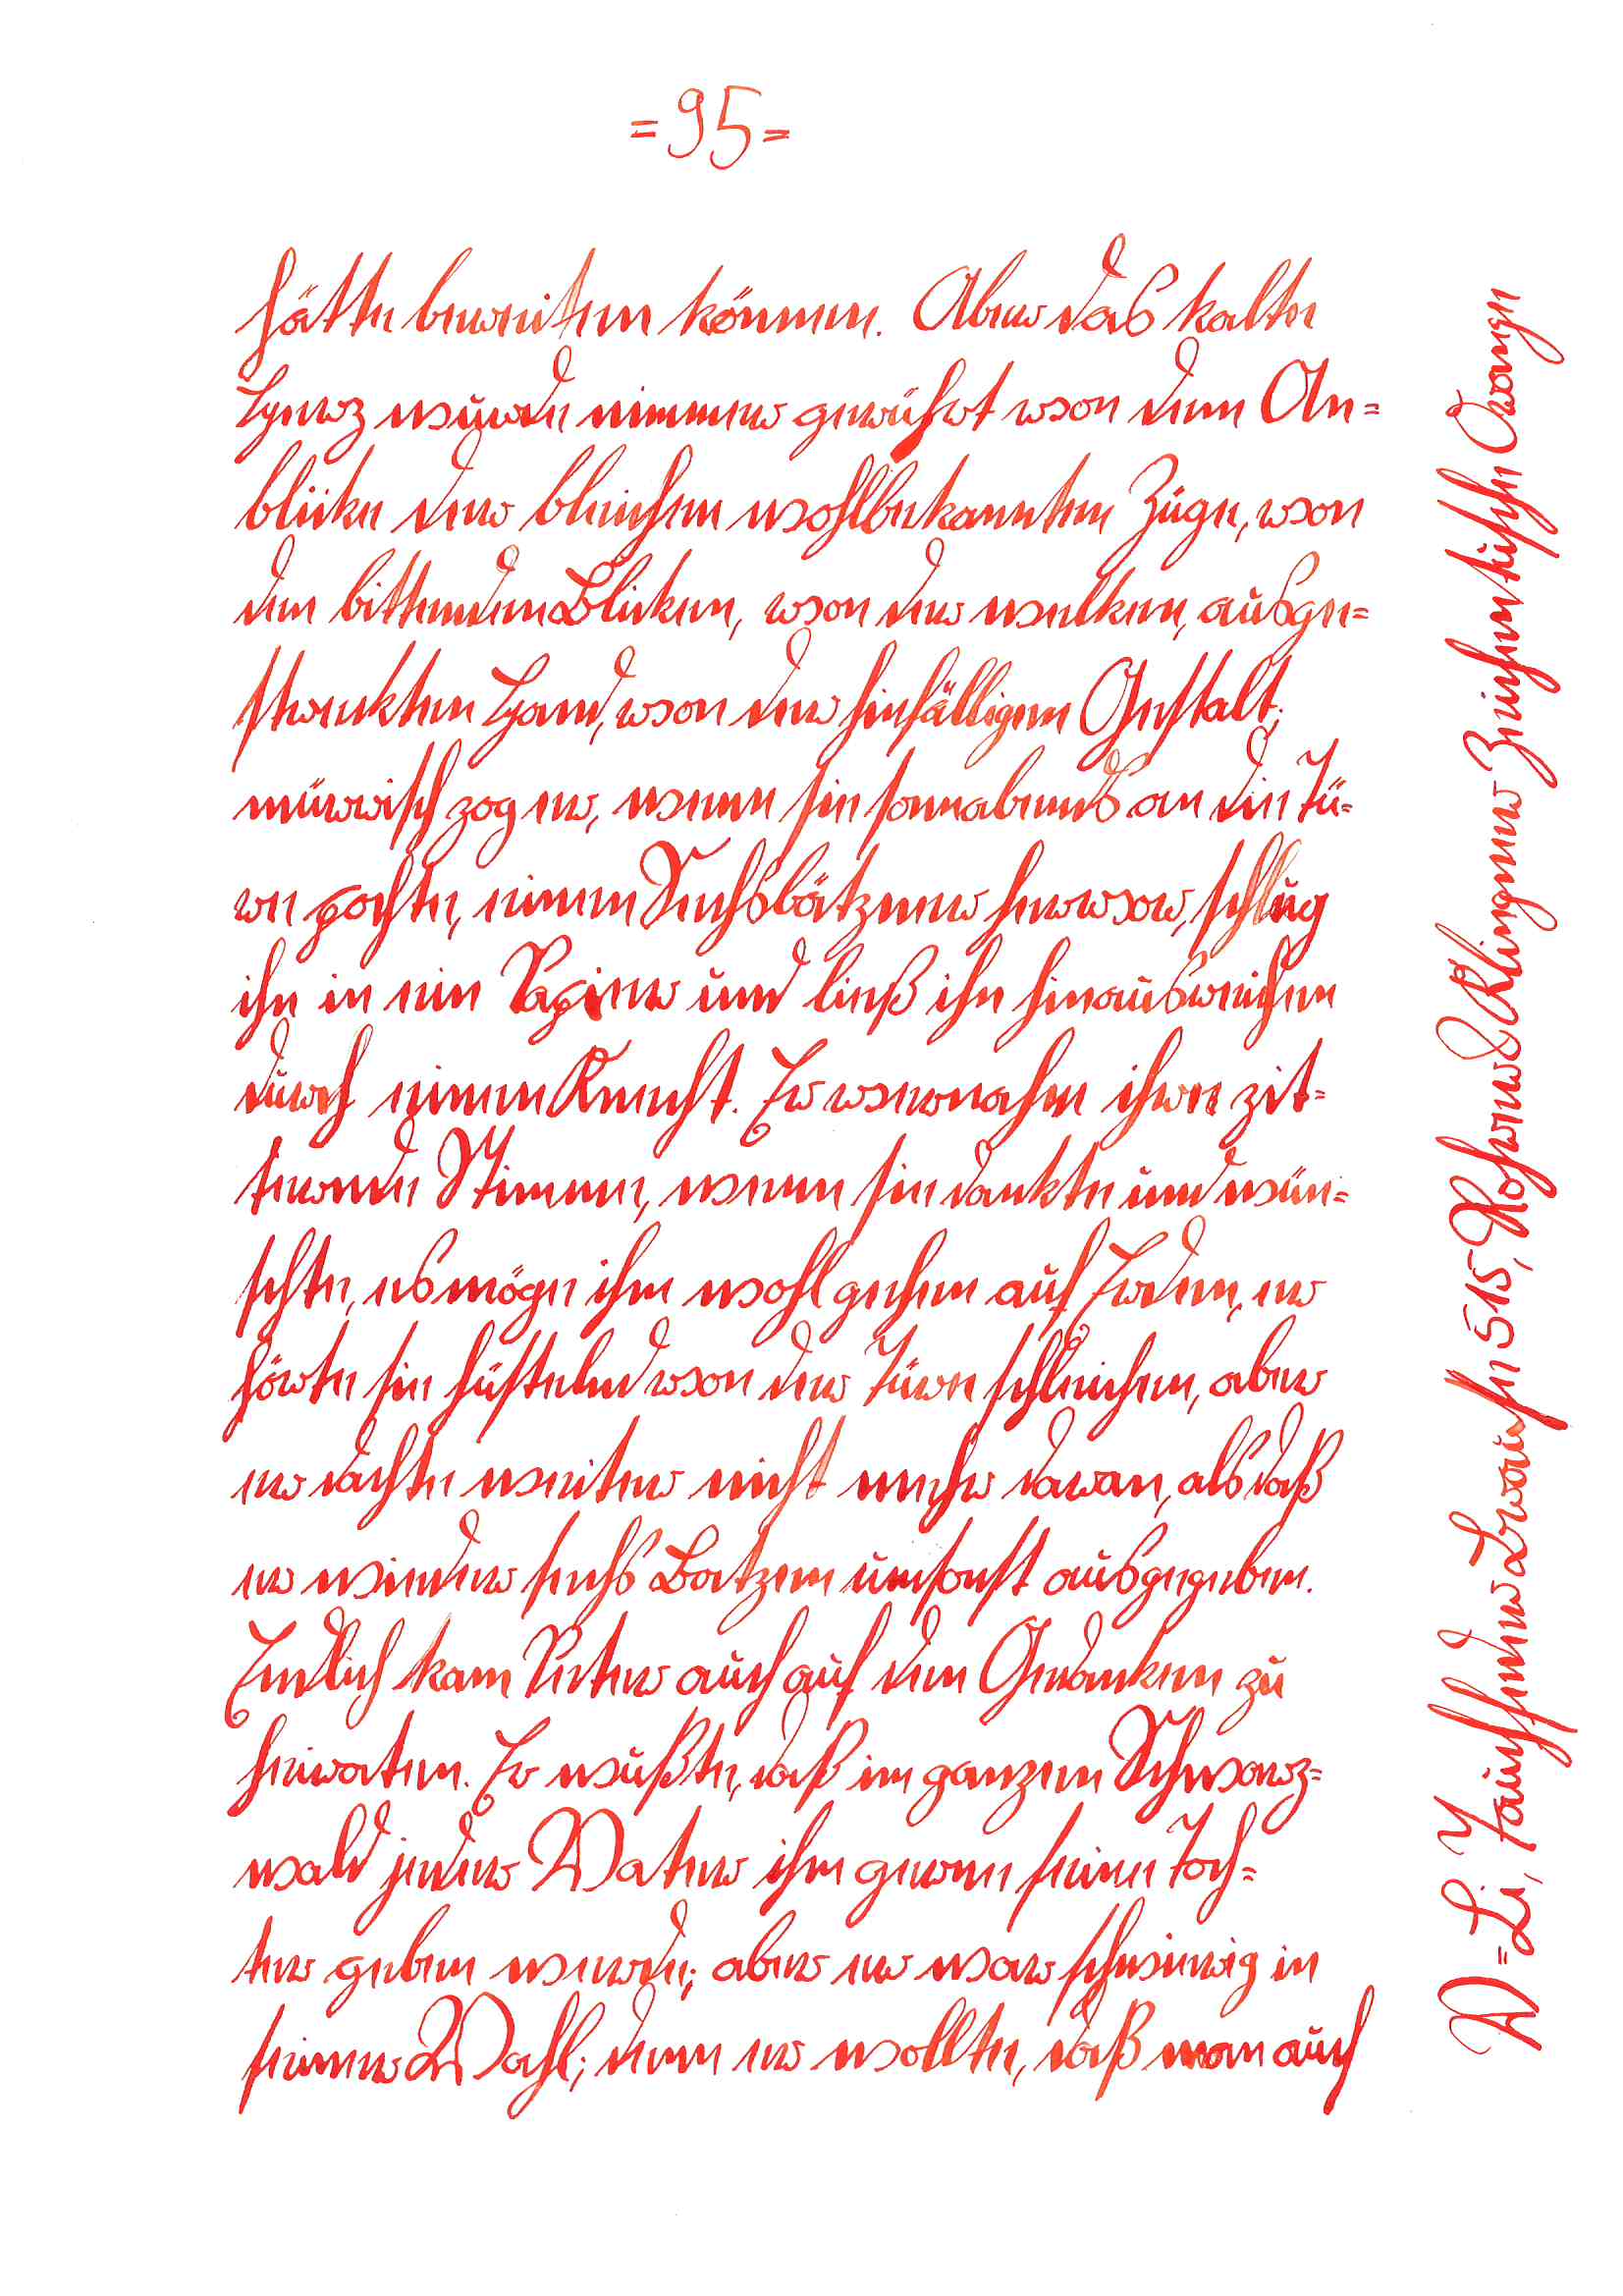 =95=
hätte bereiten können. Aber das kalte
Herz wurde nimmer gerührt von dem An=
blicke der bleichen wohlbekannten Züge, von
den bittenden Blicken, von der welken, ausge=
streckten Hand, von der hinfälligen Gestalt;
mürrisch zog er, wenn sie sonnabends an die Tü=
re pochte, einen Sechsbätzner hervor, schlug
ihn in ein Papier und ließ ihn hinausreichen
durch einen Knecht. Er vernahm ihre zit=
ternde Stimme, wenn sie dankte und wün=
schte, es möge ihm wohl gehen auf Erden, er
hörte sie hüstelnd von der Türe schleichen, aber
er dachte weiter nicht mehr daran, als daß
er wieder sechs Batzen umsonst ausgegeben.
Endlich kam Peter auch auf den Gedanken zu
heiraten. Er wußte, daß im ganzen Schwarz=
wald jeder Vater ihm gerne seine Toch=
ter geben werde; aber er war schwierig in
seiner Wahl; denn er wollte, daß man auch
V=Li, Tauchfeder Brause 515, Rohrer&Klingner Zeichentusche Orange